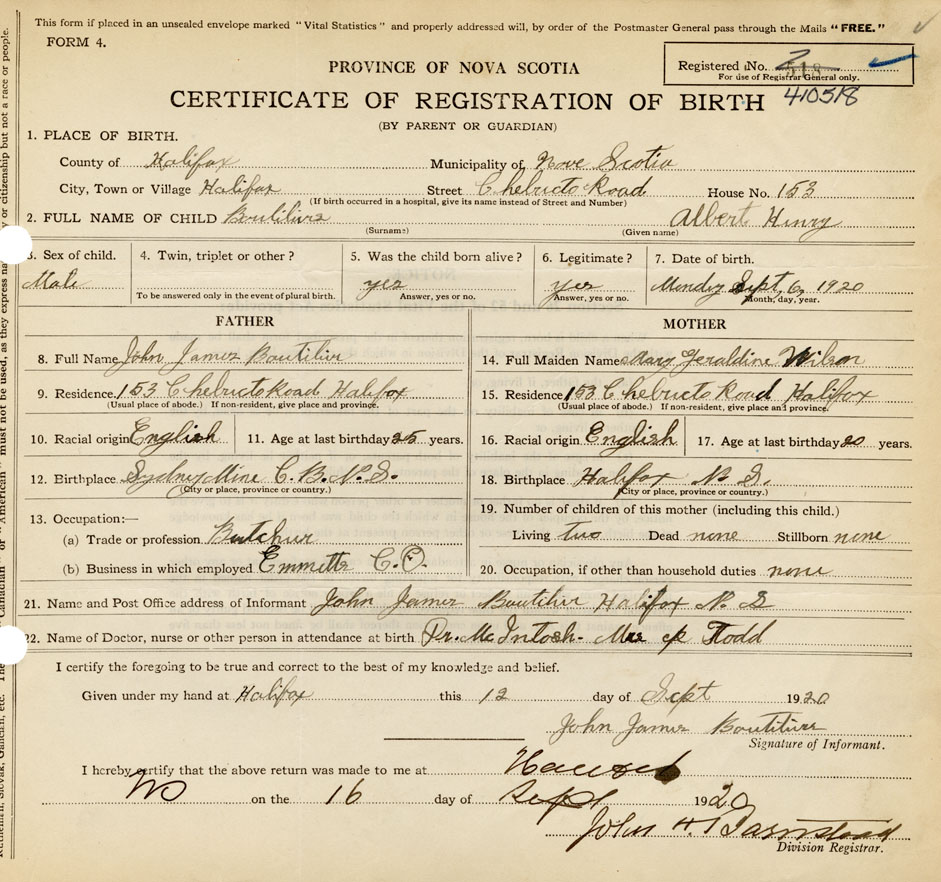 This form if placed in an unsealed envelope marked "Vital Statistics" and properly addressed will, by order of the Postmaster General pass through the Mails "FREE."
FORM 4.
Registered No.
For use of Registrar General only.
410518
PROVINCE OF NOVA SCOTIA
CERTIFICATE OF REGISTRATION OF BIRTH
(BY PARENT OR GUARDIAN)
1. PLACE OF BIRTH.
County of Halifax Municipality of Nove Scotia
City, Town or Village Halifax Street Chebucto Road House No. 153
(If birth occurred in a hospital, give its name instead of Street and Number)
2. FULL NAME OF CHILD Boutilier Albert Henry
(Surname) (Given name)
3. Sex of child. 4. Twin, triplet or other? 5. Was the child born alive? 6. Legitimate? 7. Date of birth.
Male yes yes Monday Sept, 6, 1920
To be answered only in the event of plural birth. Answer, yes or no. Answer, yes or no. Month, day, year.
FATHER MOTHER
8. Full Name John James Boutilier 14. Full Maiden Name Mary Geraldine Wilson
9. Residence 153 Chebucto Road Halifax 15. Residence 153 Chebucto Road Halifax
(Usual place of abode.) If non-resident, give place and province. (Usual place of abode.) If non-resident, give place and province.
10. Racial origin English 11. Age at last birthday 25 years. 16. Racial origin English 17. Age at last birthday 20 years.
12. Birthplace Sydney Mine C.B. N.S. 18. Birthplace Halifax N. S.
(City or place, province or country.) (City or place, province or country.)
13. Occupation:— 19. Number of children of this mother (including this child.)
(a) Trade or profession Butcher Living two Dead none Stillborn none
(b) Business in which employed Emmetts C.O. 20. Occupation, if other than household duties none
21. Name and Post Office address of Informant John James Boutilier Halifax N. S
22. Name of Doctor, nurse or other person in attendance at birth. Dr. McIntosh- Mrs Stodd
I certify the foregoing to be true and correct to the best of my knowledge and belief.
Given under my hand at Halifax this 12 day of Sept 1920
John James Boutilier
Signature of Informant.
I hereby certify that the above return was made to me at
on the 16 day of Sept 1920
John H.
Division Registrar.